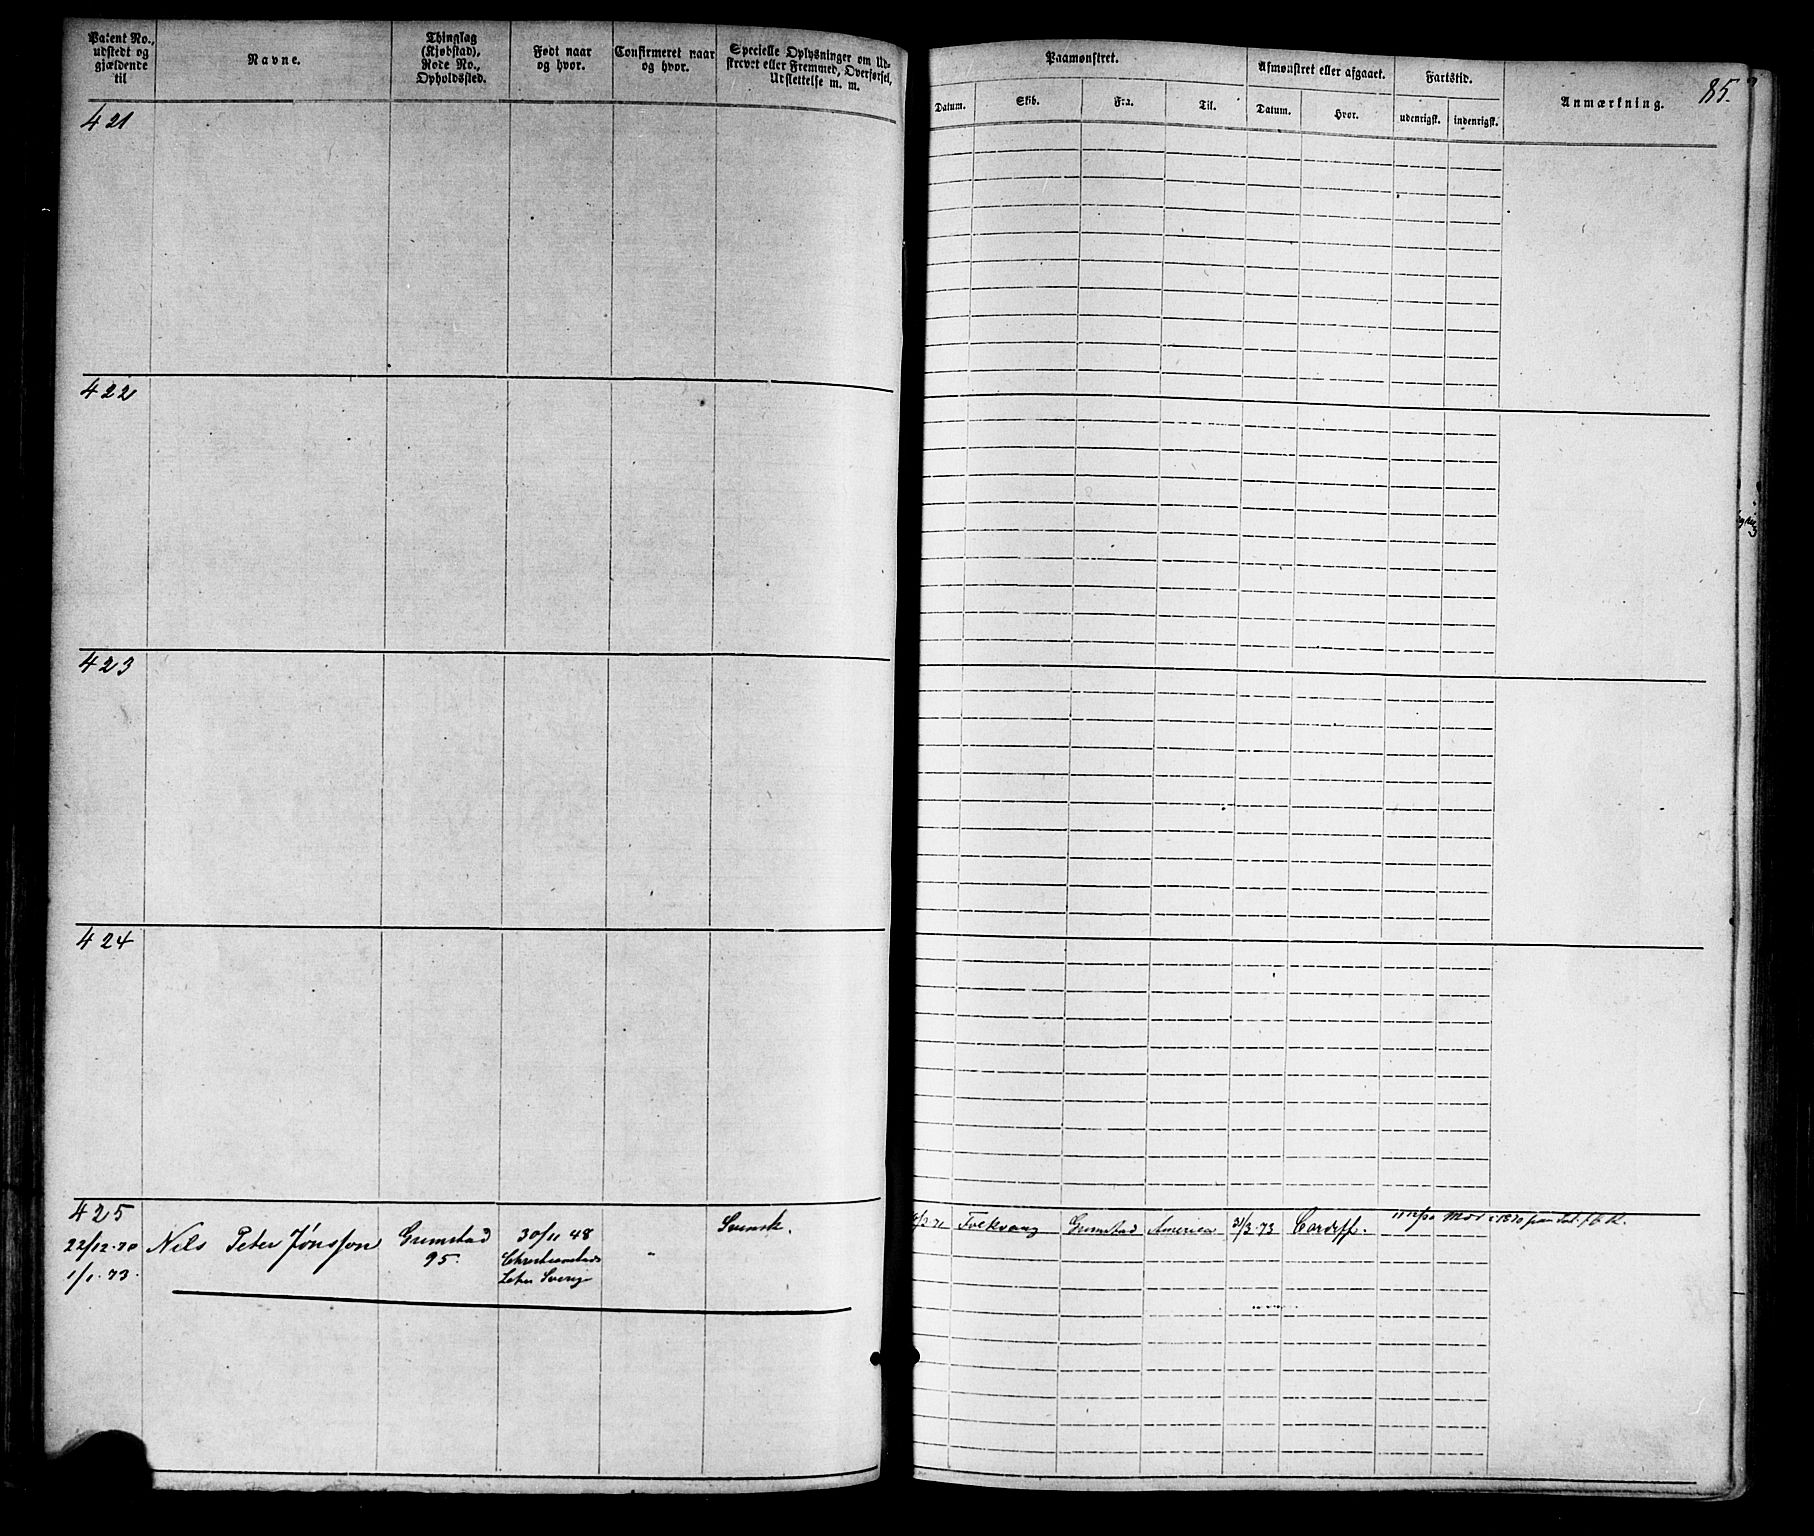 Patent No., udstedt og gjældende til
Navne.
Thinglag (Kjøbstad), Rode No., Opholdssted.
Født naar og hvor.
Confirmeret naar og hvor.
Specielle Oplysninger om Udskrevet eller Fremmed, Overførsel, Udslettelse m. m.
Paamønstret.
Afmønstret eller afgaaet.
Fartstid.
Anmærkning.
85.
Datum.
Skib.
Fra.
Til.
Datum.
Hvor.
udenrigsk.
indenrigsk.
421
422
423
424
425
22/12.70
1/1.73.
Nils Peter Jønsson
Grimstad
95.
30/11 48
Christianstads
Leten Sverig
"
Svensk.
Folkvang
Grimstad
America
31/3.73
Cardiff.